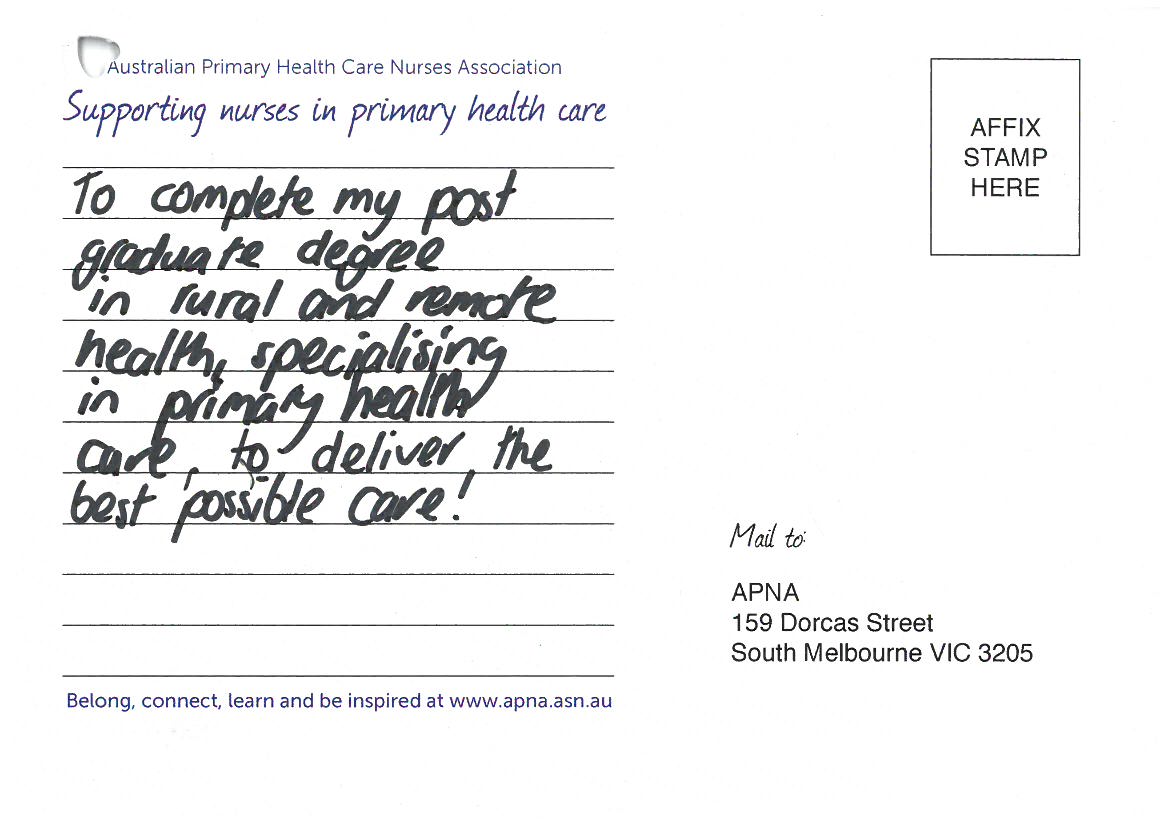 Australian Primary Health Care Nurses Association
Supporting nurses in primary health care
To complete my post
graduate degree
in rural and remote
health, specialising
in primary health
care, to deliver the
best possible care!
Belong, connect, learn and be inspired at www.apna.asn.au
AFFIX
STAMP
HERE
Mail to:
APNA
159 Dorcas Street
South Melbourne VIC 3205